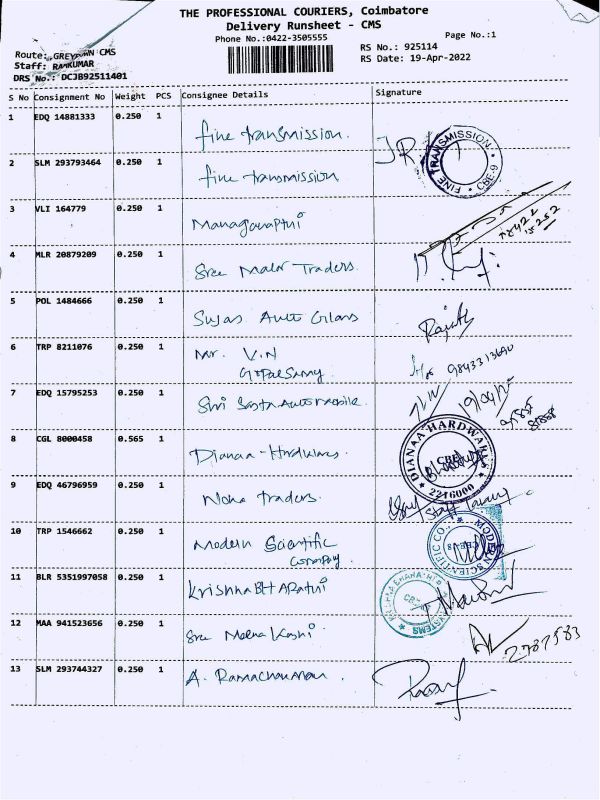 THE PROFESSIONAL COURIERS, Coimbatore
Delivery Runsheet - CMS
Phone No.:0422-3505555
Page No.:1
Route: GREYTOWN CMS
Staff: RAMKUMAR
DRS No.: DCJB92511401
RS No.: 925114
RS Date: 19-Apr-2022
S No Consignment No Weight PCS Consignee Details Signature
1 EDQ 14881333 0.250 1 fine transmission.
JR
FINE TRANSMISSION CBE-9
2 SLM 293793464 0.250 1 fine transmission
3 VLI 164779 0.250 1
4 MLR 20879209 0.250 1 Sree Malar Traders
5 POL 1484666 0.250 1 Sujas Auto Glass
6 TRP 8211076 0.250 1 Mr. V.N
GopalSamy.
9843313690
7 EDQ 15795253 0.250 1 Shri Sasta Automobile.
8 CGL 8000458 0.565 1 Dianaa-Hardwares
DIANAA HARDWARES
2216000
9 EDQ 46796959 0.250 1 traders.
10 TRP 1546662 0.250 1 Modern Scientific
Company
MODERN SCIENTIFIC CO.,
11 BLR 5351997058 0.250 1 Krishna BHARathi
SYSTEMS
12 MAA 941523656 0.250 1 Sree Meena Kashi
13 SLM 293744327 0.250 1 A. Ramachandran.